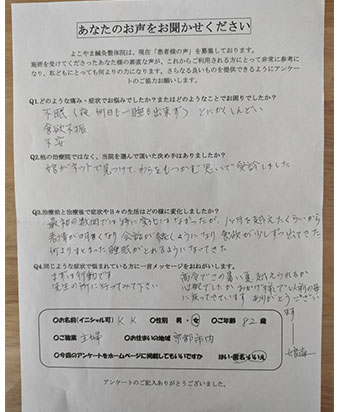 あなたのお声をお聞かせください
よこやま鍼灸整体院は、現在「患者様の声」を募集しております。
施術を受けてくださったあなた様の素直な声が、これからご利用される方にとって非常に参考に
なり、私どもにとっても何よりの力になります。さらなる良いものを提供できるようにアンケート
のご協力お願いします。
Q1.どのような痛み・症状でお悩みでしたか?またはどのようなことでお困りでしたか?
不眠(夜 何日も一睡も出来ず) とにかくしんどい
食欲不振
不安
Q2.他の治療院ではなく、当院を選んで頂いた決め手はありましたか?
娘がネットで見つけて わらをもつかむ思いで受診しました
Q3.治療前と治療後で症状や日々の生活はどの様に変化しましたか?
最初の数回では特に変化はなかったが、1ヶ月を越えたくらいから
表情が明るくなり 会話が続くようになり 食欲が少しずつ出てきた
何よりまとまった睡眠がとれるようになってきた
Q4.同じような症状で悩まれている方に一言メッセージをおねがいします。
まずは行動です
先生の所に行ってみて下さい
高令でこの暑い夏 越えられるか
心配でしたが おかげ様で以前の母
に戻ってきています ありがとうござい
ます
〇お名前(イニシャル可) K K 〇性別 男・女 〇ご年齢 82 歳
〇ご職業 主婦 〇お住まいの地域 京都市内
〇今回のアンケートをホームページに掲載してもいいですか はい・匿名・いいえ
アンケートのご記入ありがとうございました。